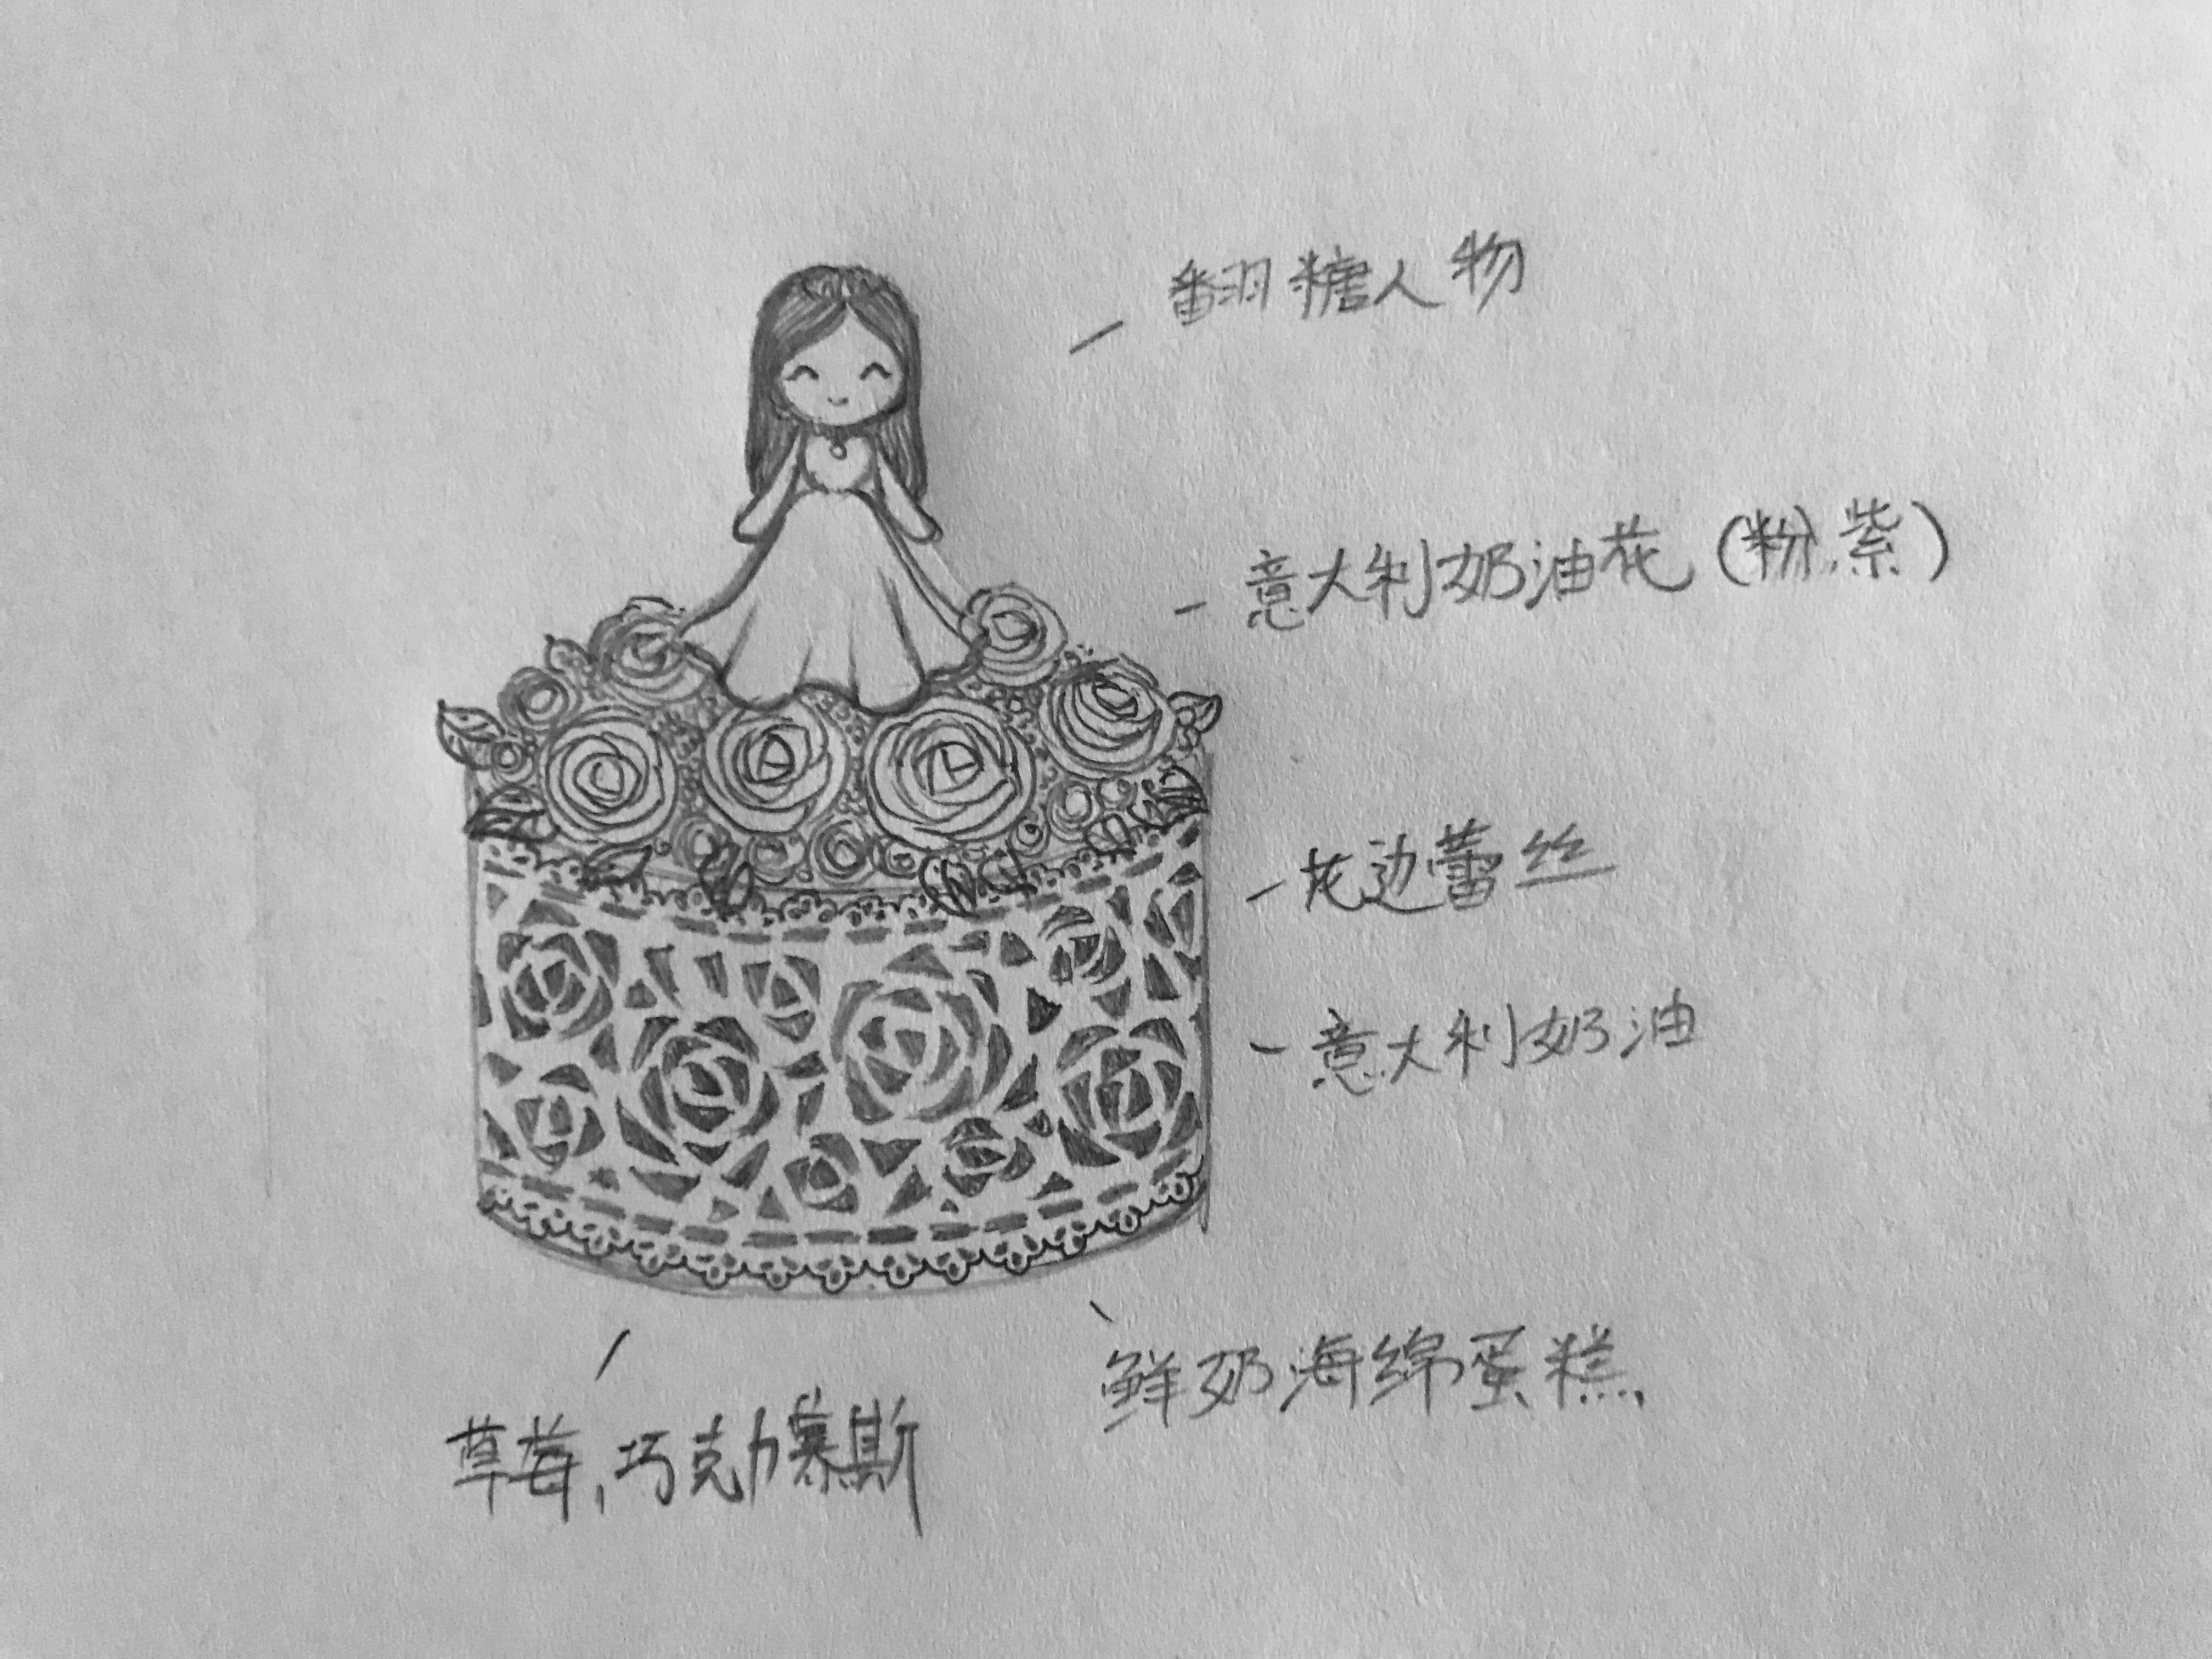 翻糖人物
意大利奶油花（粉、紫）
花边蕾丝
意大利奶油
鲜奶海绵蛋糕
草莓、巧克力慕斯